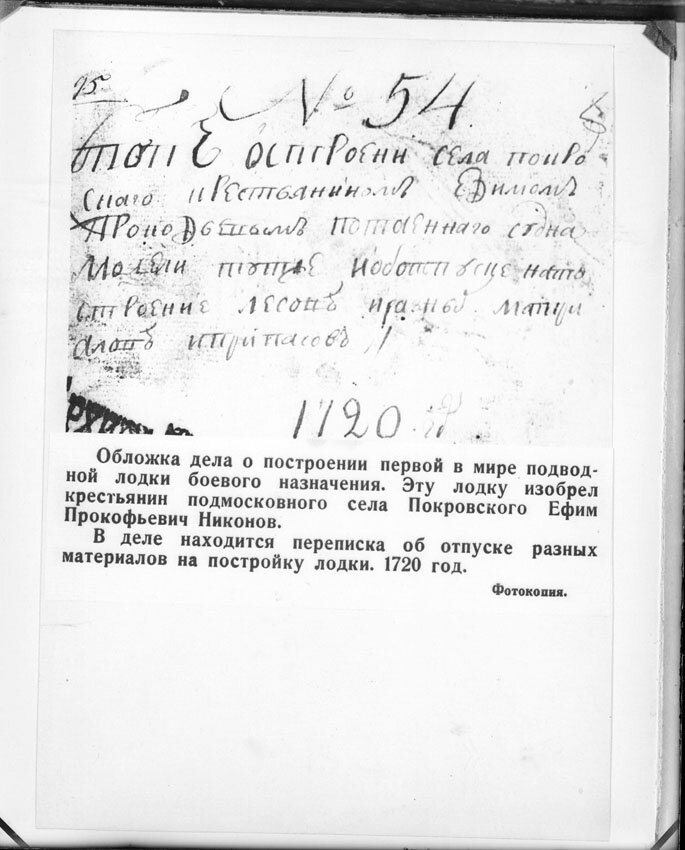 95
№ 54
о строении села покро
скаго крестьяниномъ Ефимомъ
Прокофьевымъ потаеннаго судна
модели тутже на
строение лесовъ материи
аловъ и припасовъ
1720
Обложка дела о построении первой в мире подвод-
ной лодки боевого назначения. Эту лодку изобрел
крестьянин подмосковного села Покровского Ефим
Прокофьевич Никонов.
В деле находится переписка об отпуске разных
материалов на постройку лодки. 1720 год.
Фотокопия.